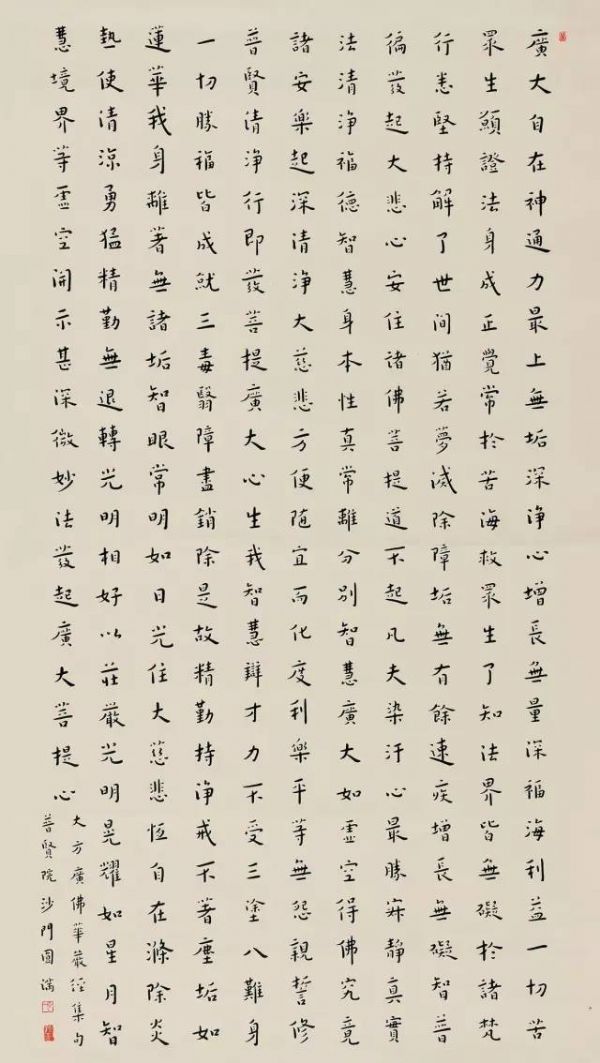 廣大自在神通力最上無垢深淨心增長無量深福海利益一切苦
眾生願證法身成正覺常於苦海救眾生了知法界皆無礙於諸梵
行悉堅持解了世間猶若夢滅除障垢無有餘速疾增長無礙智普
徧發起大悲心安住諸佛菩提道不起凡夫染汙心最勝寂靜真實
法清淨福德智慧身本性真常離分別智慧廣大如虛空得佛究竟
諸安樂起深清淨大慈悲方便隨宜而化度利樂平等無怨親誓修
普賢清淨行即發菩提廣大心生我智慧辯才力不受三塗八難身
一切勝福皆成就三毒翳障盡銷除是故精勤持淨戒不著塵垢如
蓮華我身離著無諸垢智眼常明如日光住大慈悲恆自在滌除炎
熱使清涼勇猛精勤無退轉光明相好以莊嚴光明晃耀如星月智
慧境界等虛空開示甚深微妙法發起廣大菩提心
大方廣佛華嚴經集句
普賢院沙門圓滿